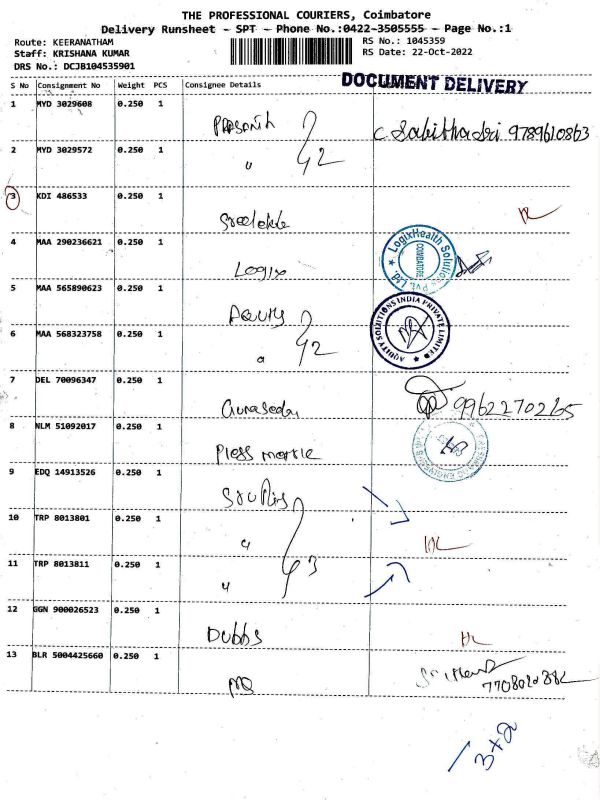 THE PROFESSIONAL COURIERS, Coimbatore
Delivery Runsheet - SPT - Phone No.:0422-3505555 - Page No.:1
Route: KEERANATHAM
RS No.: 1045359
Staff: KRISHANA KUMAR
RS Date: 22-Oct-2022
DRS No.: DCJB104535901
S No Consignment No Weight PCS Consignee Details
DOCUMENT DELIVERY
1 MYD 3029608 0.250 1
9789610863
2 MYD 3029572 0.250 1
3 KDI 486533 0.250 1
4 MAA 290236621 0.250 1
Logix
LogixHealth Solutions Pvt. Ltd.
COIMBATORE
5 MAA 565890623 0.250 1
AQUITY SOLUTIONS INDIA PRIVATE LIMITED
6 MAA 568323758 0.250 1
7 DEL 70096347 0.250 1
9962270265
8 NLM 51092017 0.250 1
9 EDQ 14913526 0.250 1
10 TRP 8013801 0.250 1
11 TRP 8013811 0.250 1
12 GGN 900026523 0.250 1
Dubbs
13 BLR 5004425660 0.250 1
3+2